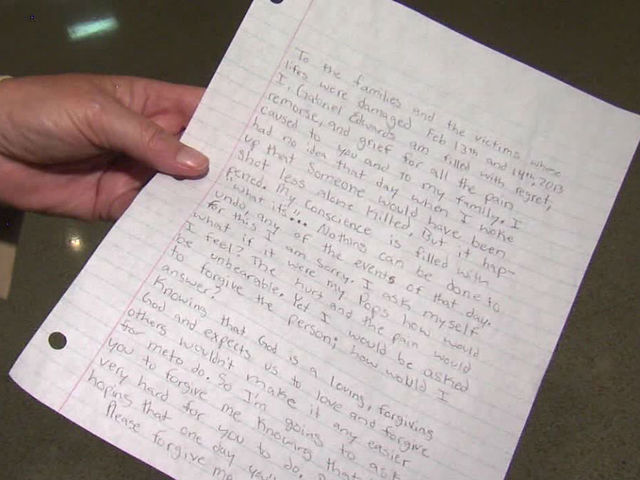 To the families and the victims whose
lifes were damaged Feb 13th and 14th, 2013
I, Gabriel Edwards am filled with regret,
remorse, and grief for all the pain
caused to you and to my family. I
had no idea that day when I woke
up that someone would have been
shot less alone killed. But it hap-
pened. My conscience is filled with
"what ifs"... Nothing can be done to
undo any of the events of that day.
for this I am sorry. I ask myself
what if it were my Pops how would
I feel? The hurt and the pain would
be unbearable. Yet I would be asked
to forgive the person; how would I
answer?
Knowing that God is a loving, forgiving
God and expects us to love and forgive
others wouldn't make it any easier
for me to do. So I'm going to ask
you to forgive me knowing that
very hard for you to do.
hoping that one day you'll
Please forgive me